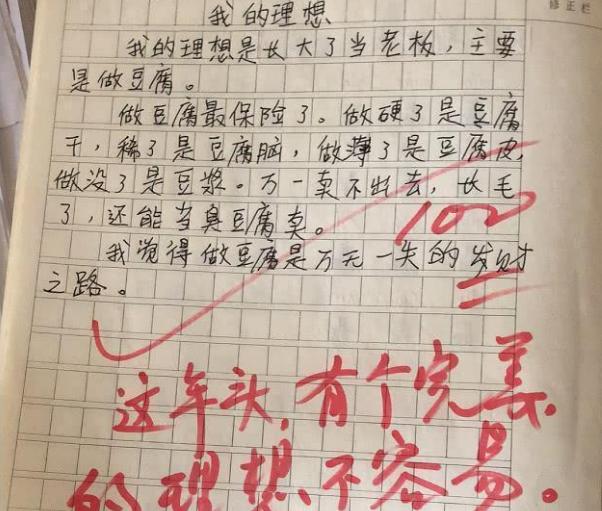 修正栏
我的理想
我的理想是长大了当老板，主要
是做豆腐。
做豆腐最保险了。做硬了是豆腐
干，稀了是豆腐脑，做薄了是豆腐皮，
做没了是豆浆。万一卖不出去，长毛
了，还能当臭豆腐卖。
100
我觉得做豆腐是万无一失的发财
之路。
这年头，有个完美
的理想不容易。